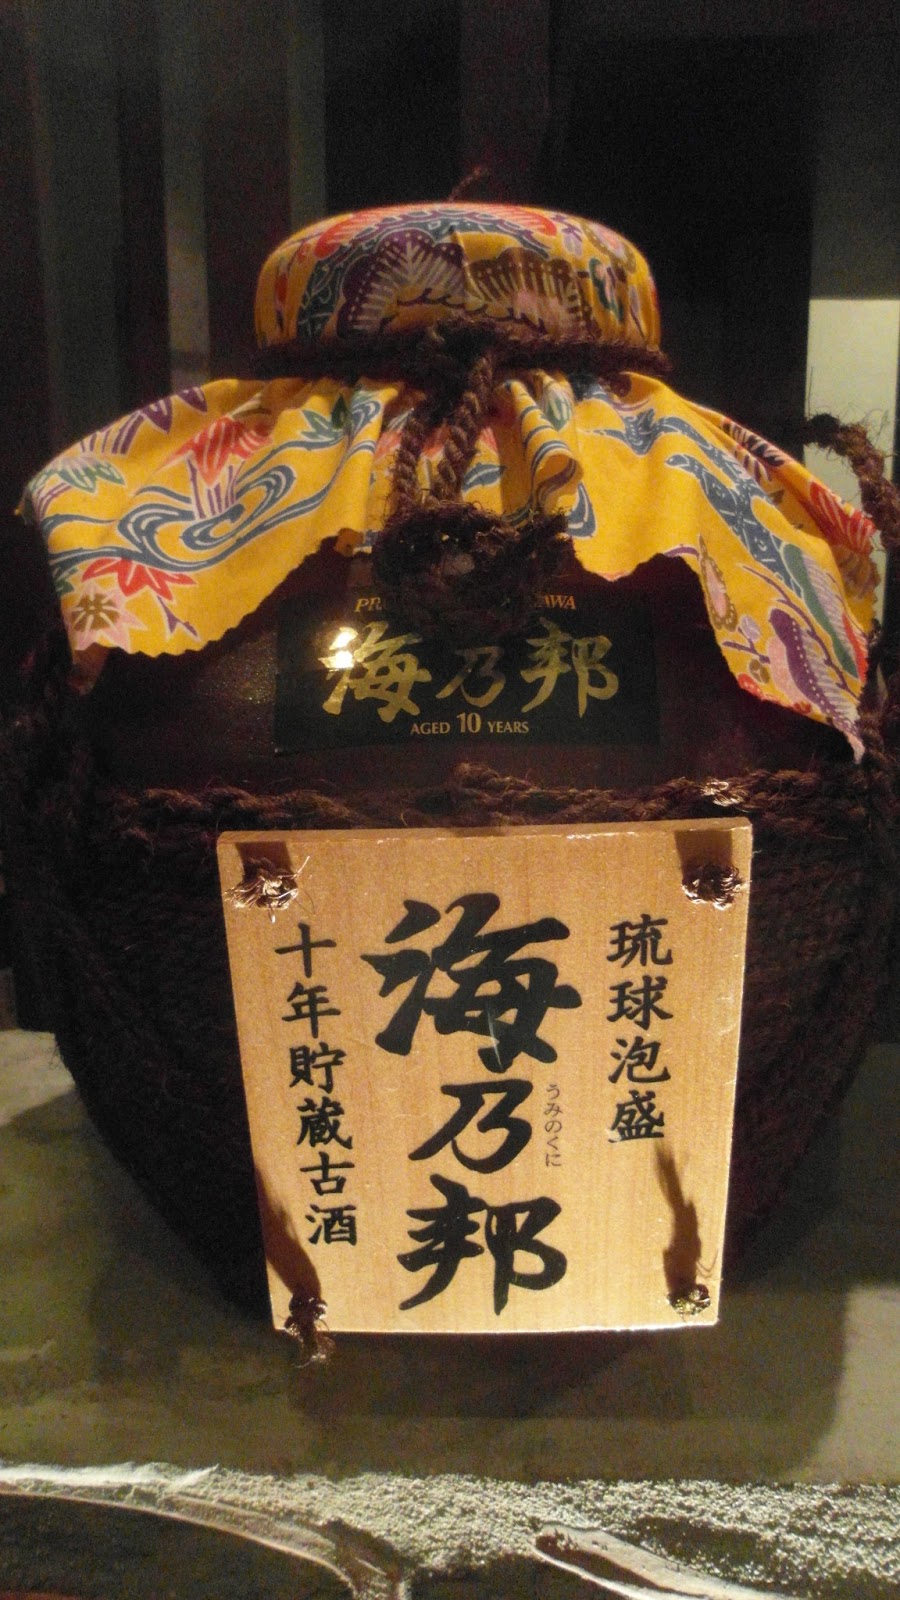 海乃邦
AGED 10 YEARS
琉球泡盛
海乃邦
うみのくに
十年貯蔵古酒